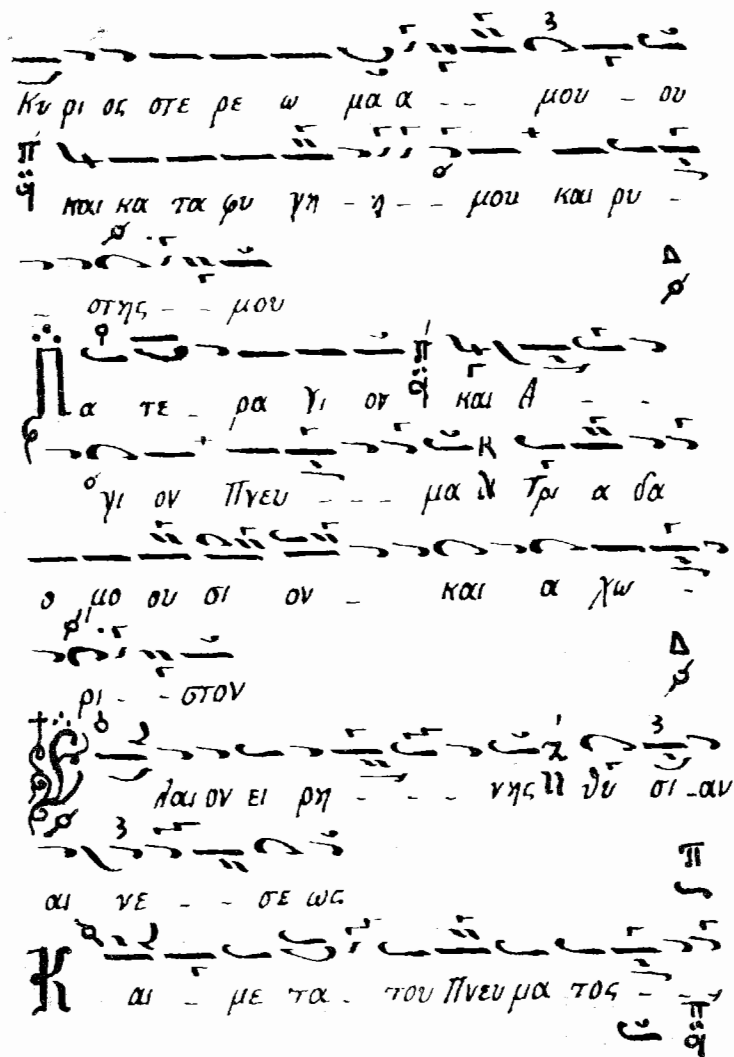 Κυ ρι ος στε ρε ω μα α - - μου - ου
και κα τα φυ γη - η - - μου και ρυ -
- στης - - μου
Πα τε - ρα γι ον και Α - -
γι ον Πνευ - - - - μα Τρι α δα
ο μο ου σι ον - και α χω -
ρι - - στον
Ελαι ον ει ρη - - - - νης θυ σι - αν
αι νε - - σε ως
Και - με τα - του Πνευ μα τος -